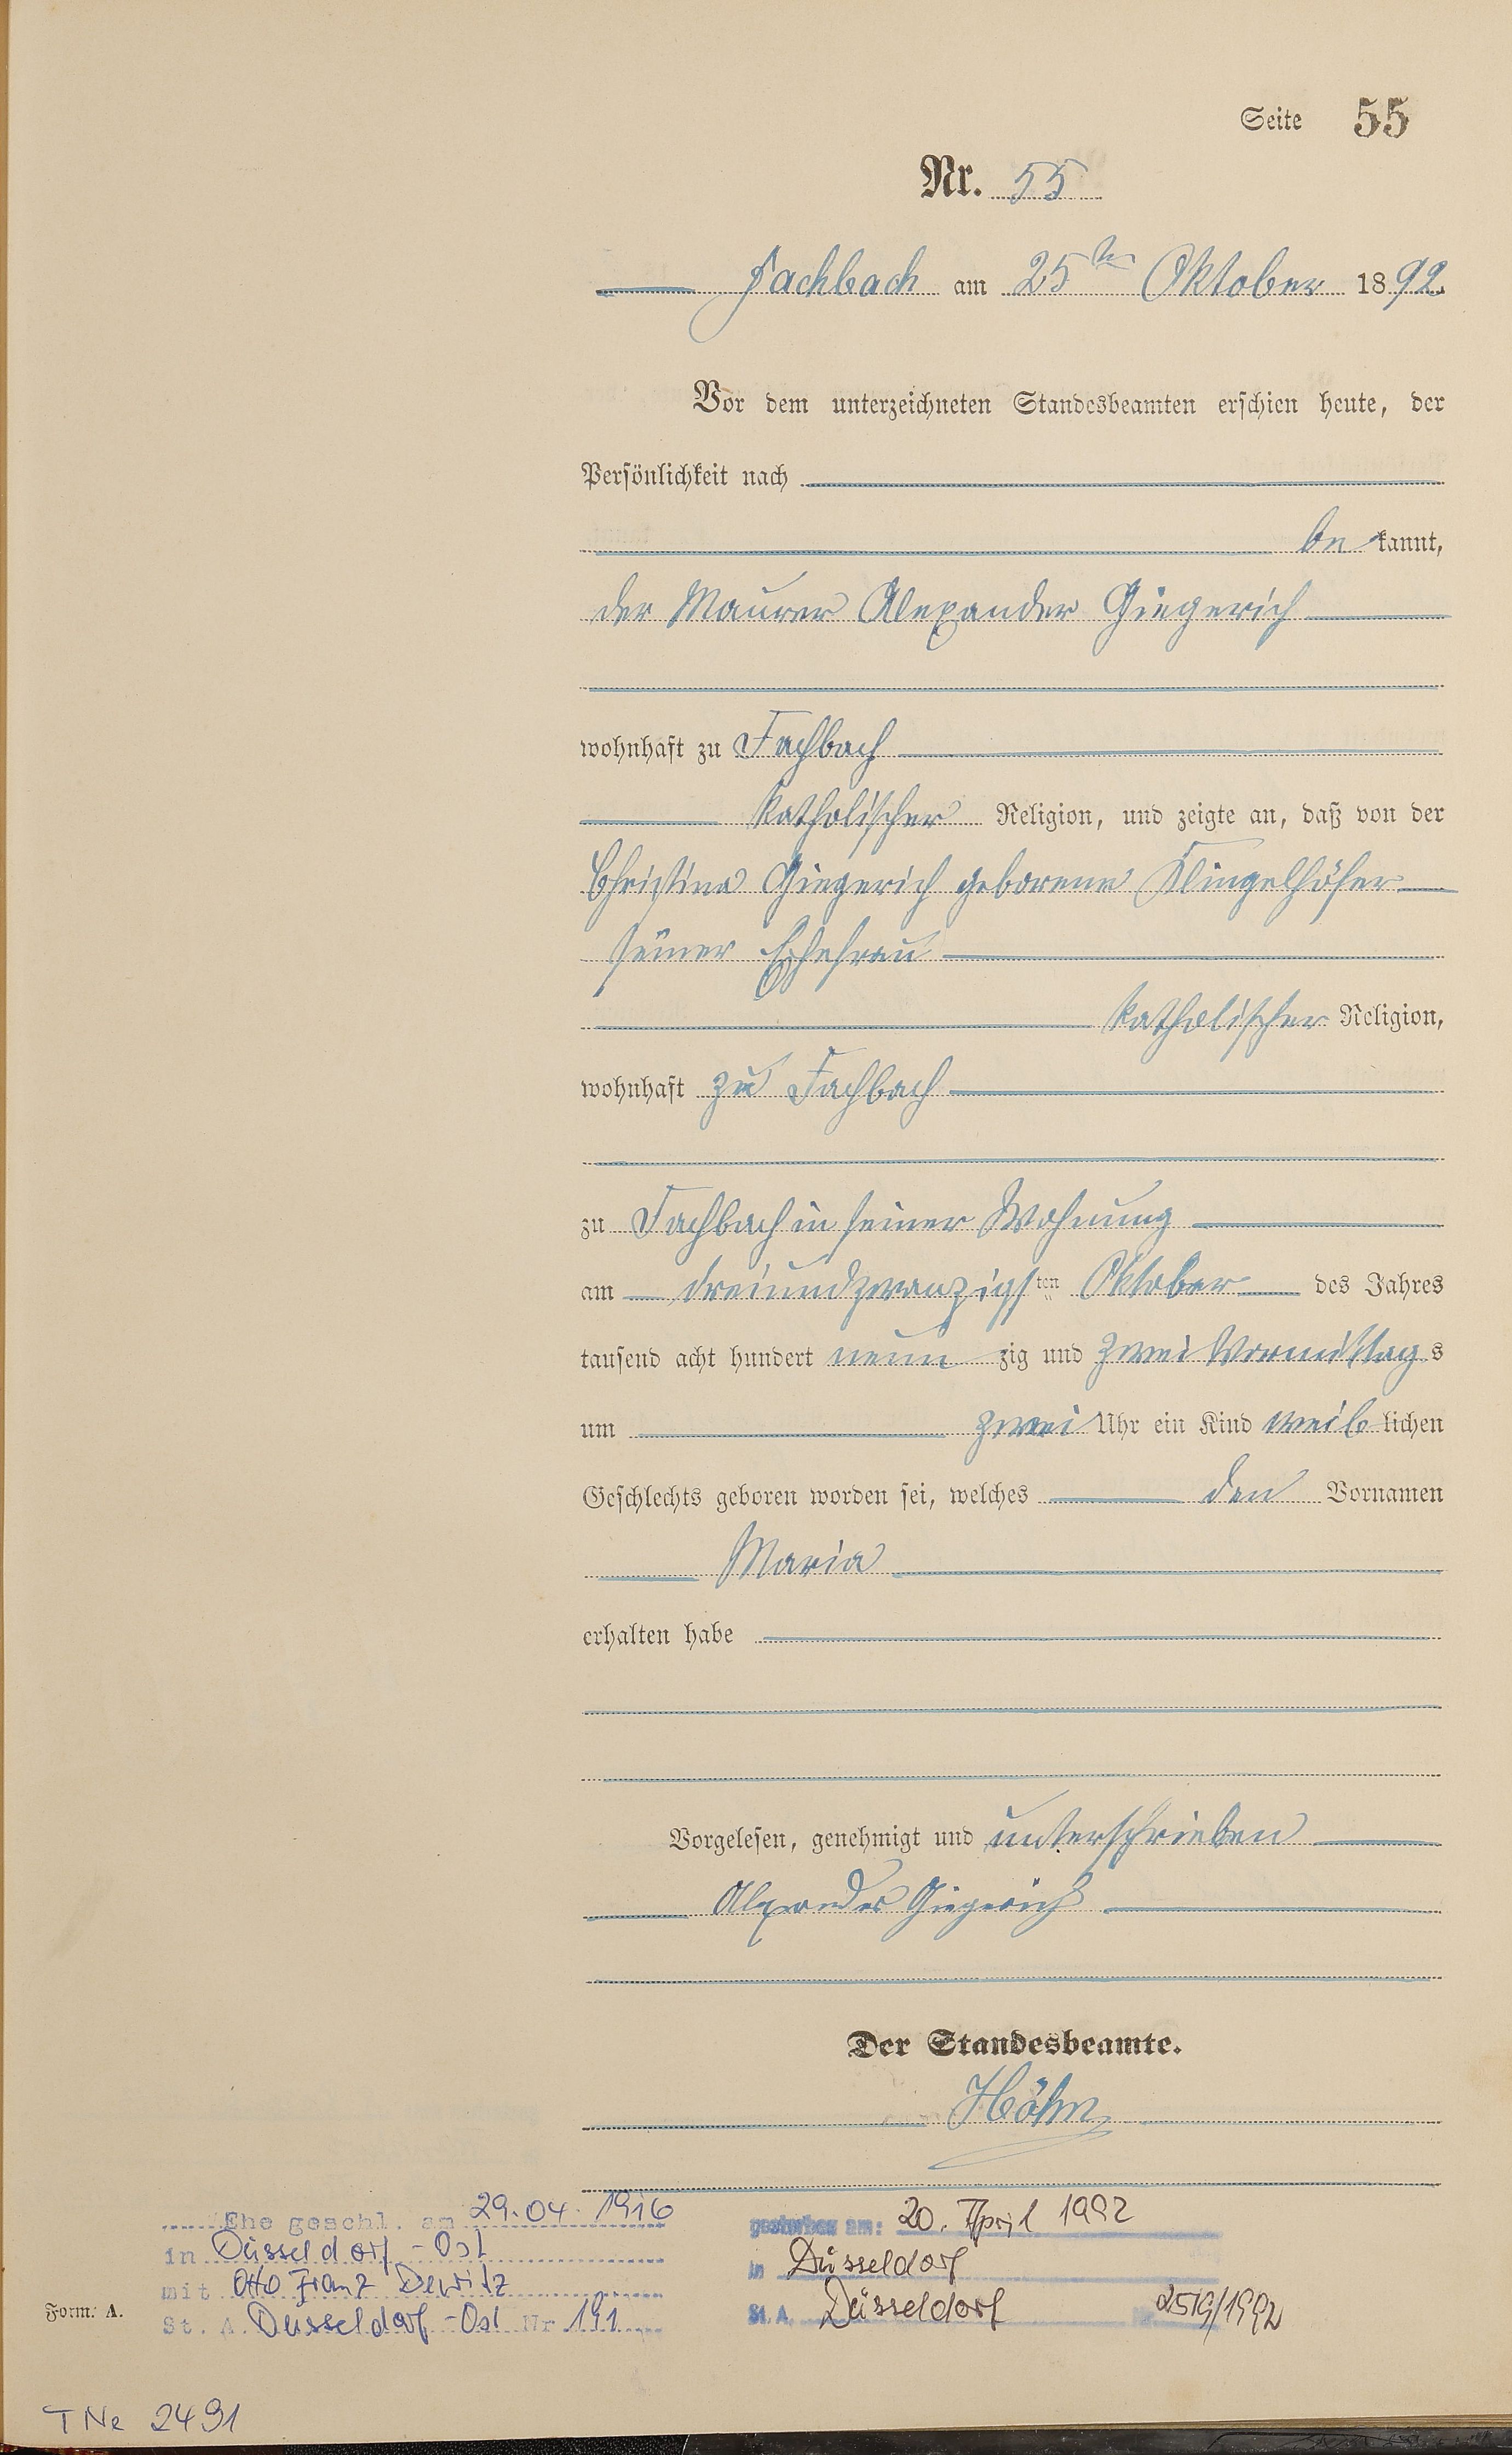 Seite 55
Nr. 55
Fachbach am 25ten Oktober 1892
Vor dem unterzeichneten Standesbeamten erschien heute, der
Persönlichkeit nach
be kannt,
der Maurer Alexander Giegerich
wohnhaft zu Fachbach
katholischer Religion, und zeigte an, daß von der
Christina Giegerich geborene Klingelhöfer
seiner Ehefrau
katholischer Religion,
wohnhaft zu Fachbach
zu Fachbach in seiner Wohnung
am dreiundzwanzigsten Oktober des Jahres
tausend acht hundert neun zig und zwei Vormittags
um zwei Uhr ein Kind weiblichen
Geschlechts geboren worden sei, welches den Vornamen
Maria
erhalten habe
Vorgelesen, genehmigt und unterschrieben
Alexander Giegerich
Der Standesbeamte.
Höhn
Ehe geschl. am 29.04.1916
in Düsseldorf-Ost
mit Otto Franz Dewitz
St. A. Düsseldorf-Ost Nr 191
gestorben am: 20. April 1992
in Düsseldorf
St. A. Düsseldorf Nr. 2519/1992
Form. A.
TNe 2491